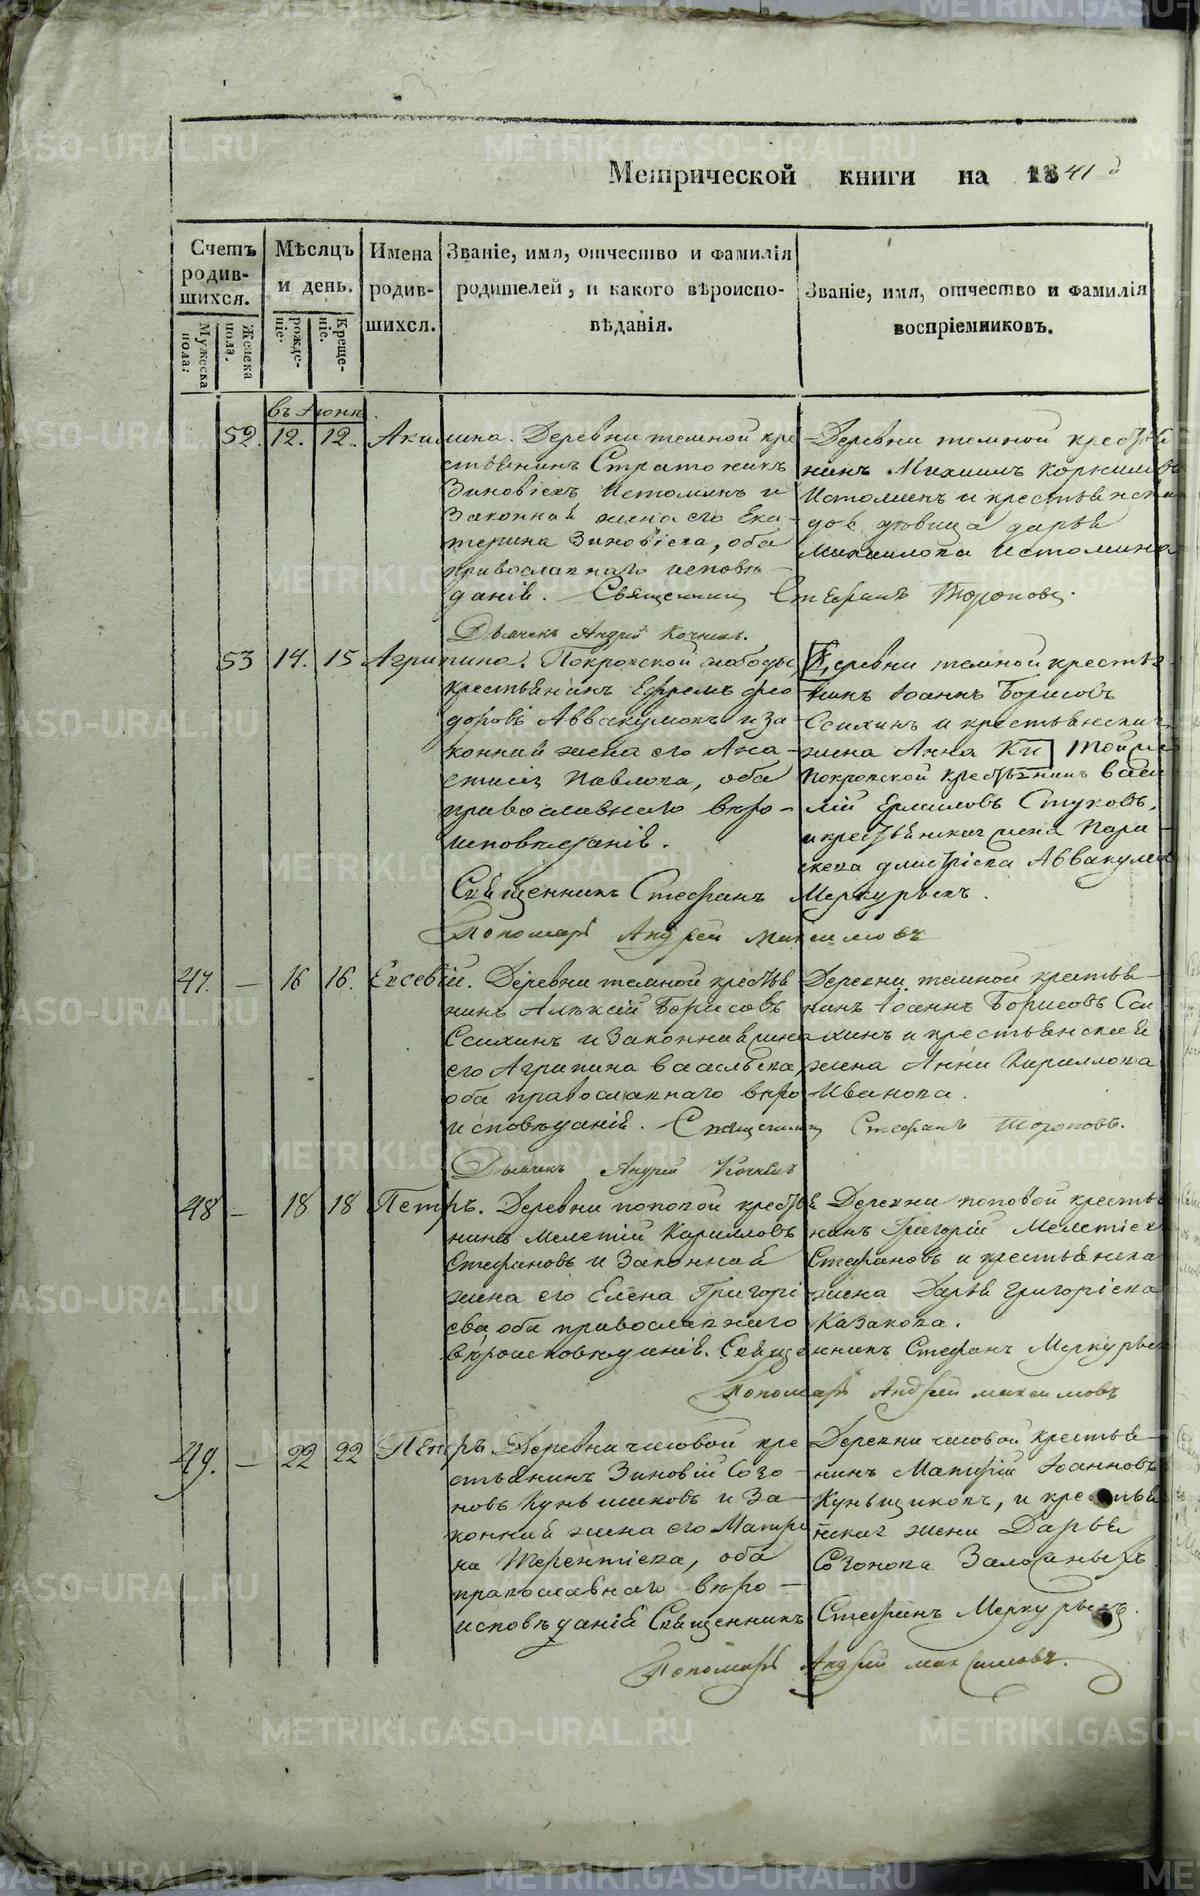 Метрической книги на 1841 д
Счетъ родив-шихся.
Мужеска пола:
Женска пола.
Мѣсяцъ и день.
рожде-ніе.
Креще-ніе.
Имена родив-шихся.
Званіе, имя, отчество и фамилія
родителей, и какого вѣроиспо-
вѣданія.
Званіе, имя, отчество и фамилія
воспріемниковъ.
въ Іюнѣ.
52. 12. 12. Акилина. Деревни темной кре
стьянинъ Стратоникъ
Зиновіевъ Истоминъ и
Законная жена его Ека-
терина Зиновіева, оба
православнаго исповѣ-
данія. Священникъ Стефанъ Тороповъ.
Дьячекъ Андрей Кочневъ.
Деревни темной крестья
нинъ Михаилъ Корнилов
Истоминъ и крестьянска
дова дарья
Михаилова Истомина
53 14. 15 Агрипина. Покровской слободы,
крестьянинъ Ефремъ фео
доровъ Аввакумовъ и за-
конная жена его Ана-
стасія Павлова, оба
православнаго вѣро-
исповѣданія.
Священникъ Стефанъ Меркурьевъ.
Пономарь Андрей Максимовъ
Деревни темной крестья-
нинъ Іоаннъ Борисовъ
Ссилинъ и крестьянска
жена Анна Ки
Покровской крестьянинъ Васи
лій Ермиловъ Стуковъ,
и крестьянская жена Пара-
скева дмитріева Аввакумов
47. — 16 16. Евсевій. Деревни темной крестья
нинъ Алексій Борисовъ
Ссилинъ и Законная жена
его Агрипина васильева,
оба православнаго вѣро
исповѣданія. Священникъ Стефанъ Тороповъ.
Дьячекъ Андрей Кочневъ
Деревни темной крестья-
нинъ Іоаннъ Борисовъ Сси
линъ и крестьянская
жена Анна Кириллова
Иванова.
48 — 18 18 Петръ. Деревни поповой крестья
нинъ Мелетій Карилловъ
Стефановъ и Законная
жена его Елена Григорі
ева оба православнаго
вѣроисповѣданія. Священникъ Стефанъ Меркурьев
Пономарь Андрей максимовъ
Деревни поповой крестья
нинъ Григорій Мелетіев
Стефановъ и крестьянска
жена Дарья григоріева
Казакова.
49. — 22 22 Петръ. Деревни часовой кре
стьянинъ Зиновій Созо-
новъ Куньщиковъ и За-
конная жена его Матре
на Терентіева, оба
православнаго вѣро-
исповѣданія Священникъ Стефанъ Меркурьевъ.
Пономарь Андрей максимовъ.
Деревни часовой крестья-
нинъ Матфій Іоанновъ
Куньщиковъ, и крестья
нская жена Дарья
Созонова